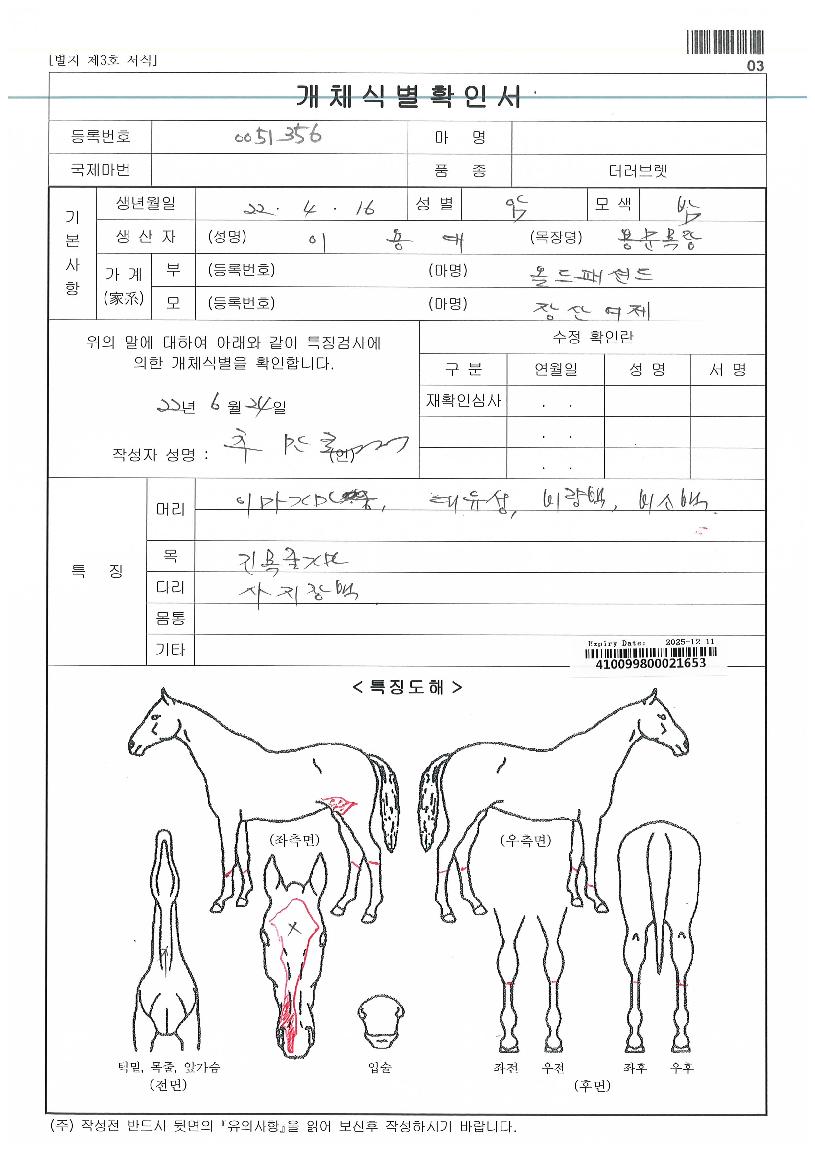 [별지 제3호 서식]
03
개체식별확인서
등록번호 0051356 마 명
국제마번 품 종 더러브렛
기본사항
생년월일 22. 4. 16 성별 암 모색 밤
생산자 (성명) 이 용 대 (목장명)
가계 (家系) 부 (등록번호) (마명) 올드패션드
모 (등록번호) (마명) 장산여제
위의 말에 대하여 아래와 같이 특징검사에
의한 개체식별을 확인합니다.
22년 6월 24일
작성자 성명 : (인)
수정 확인란
구 분 연월일 성 명 서 명
재확인심사 . .
. .
. .
특 징
머리 대유성, 비량백, 비소백.
목
다리 사지장백
몸통
기타
Expiry Date: 2025-12-11
410099800021653
< 특징도해 >
(좌측면) (우측면)
턱밑, 목줄, 앞가슴 입술 좌전 우전 좌후 우후
(전면) (후면)
(주) 작성전 반드시 뒷면의 『유의사항』을 읽어 보신후 작성하시기 바랍니다.